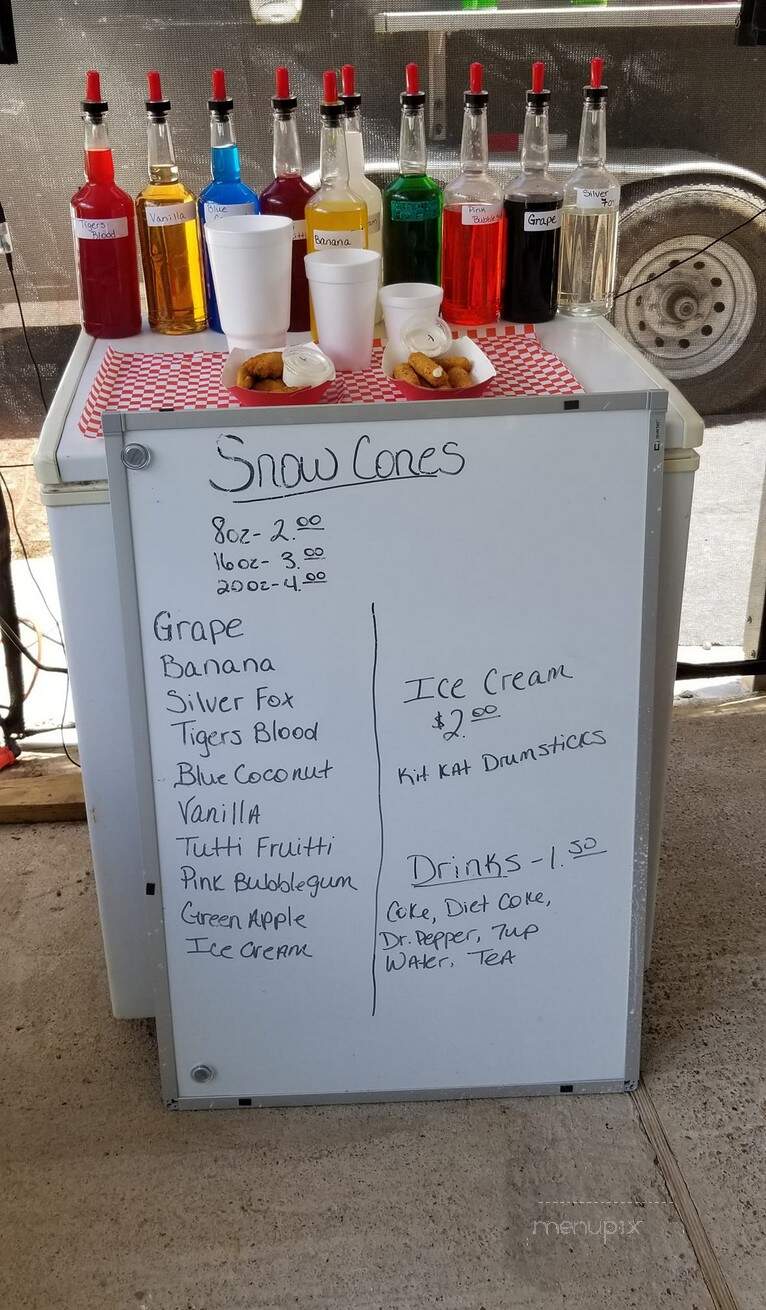 Tigers
Blood
Vanilla
Blue
Banana
Pink
Grape
Silver
Fox
Snow Cones
8oz - 2.00
16oz - 3.00
20oz - 4.00
Grape
Banana
Silver Fox
Tigers Blood
Blue Coconut
Vanilla
Tutti Fruitti
Pink Bubblegum
Green Apple
Ice Cream
Ice Cream
$2.00
Kit Kat Drumsticks
Drinks - 1.50
Coke, Diet Coke,
Dr. Pepper, 7up
Water, Tea
menupix